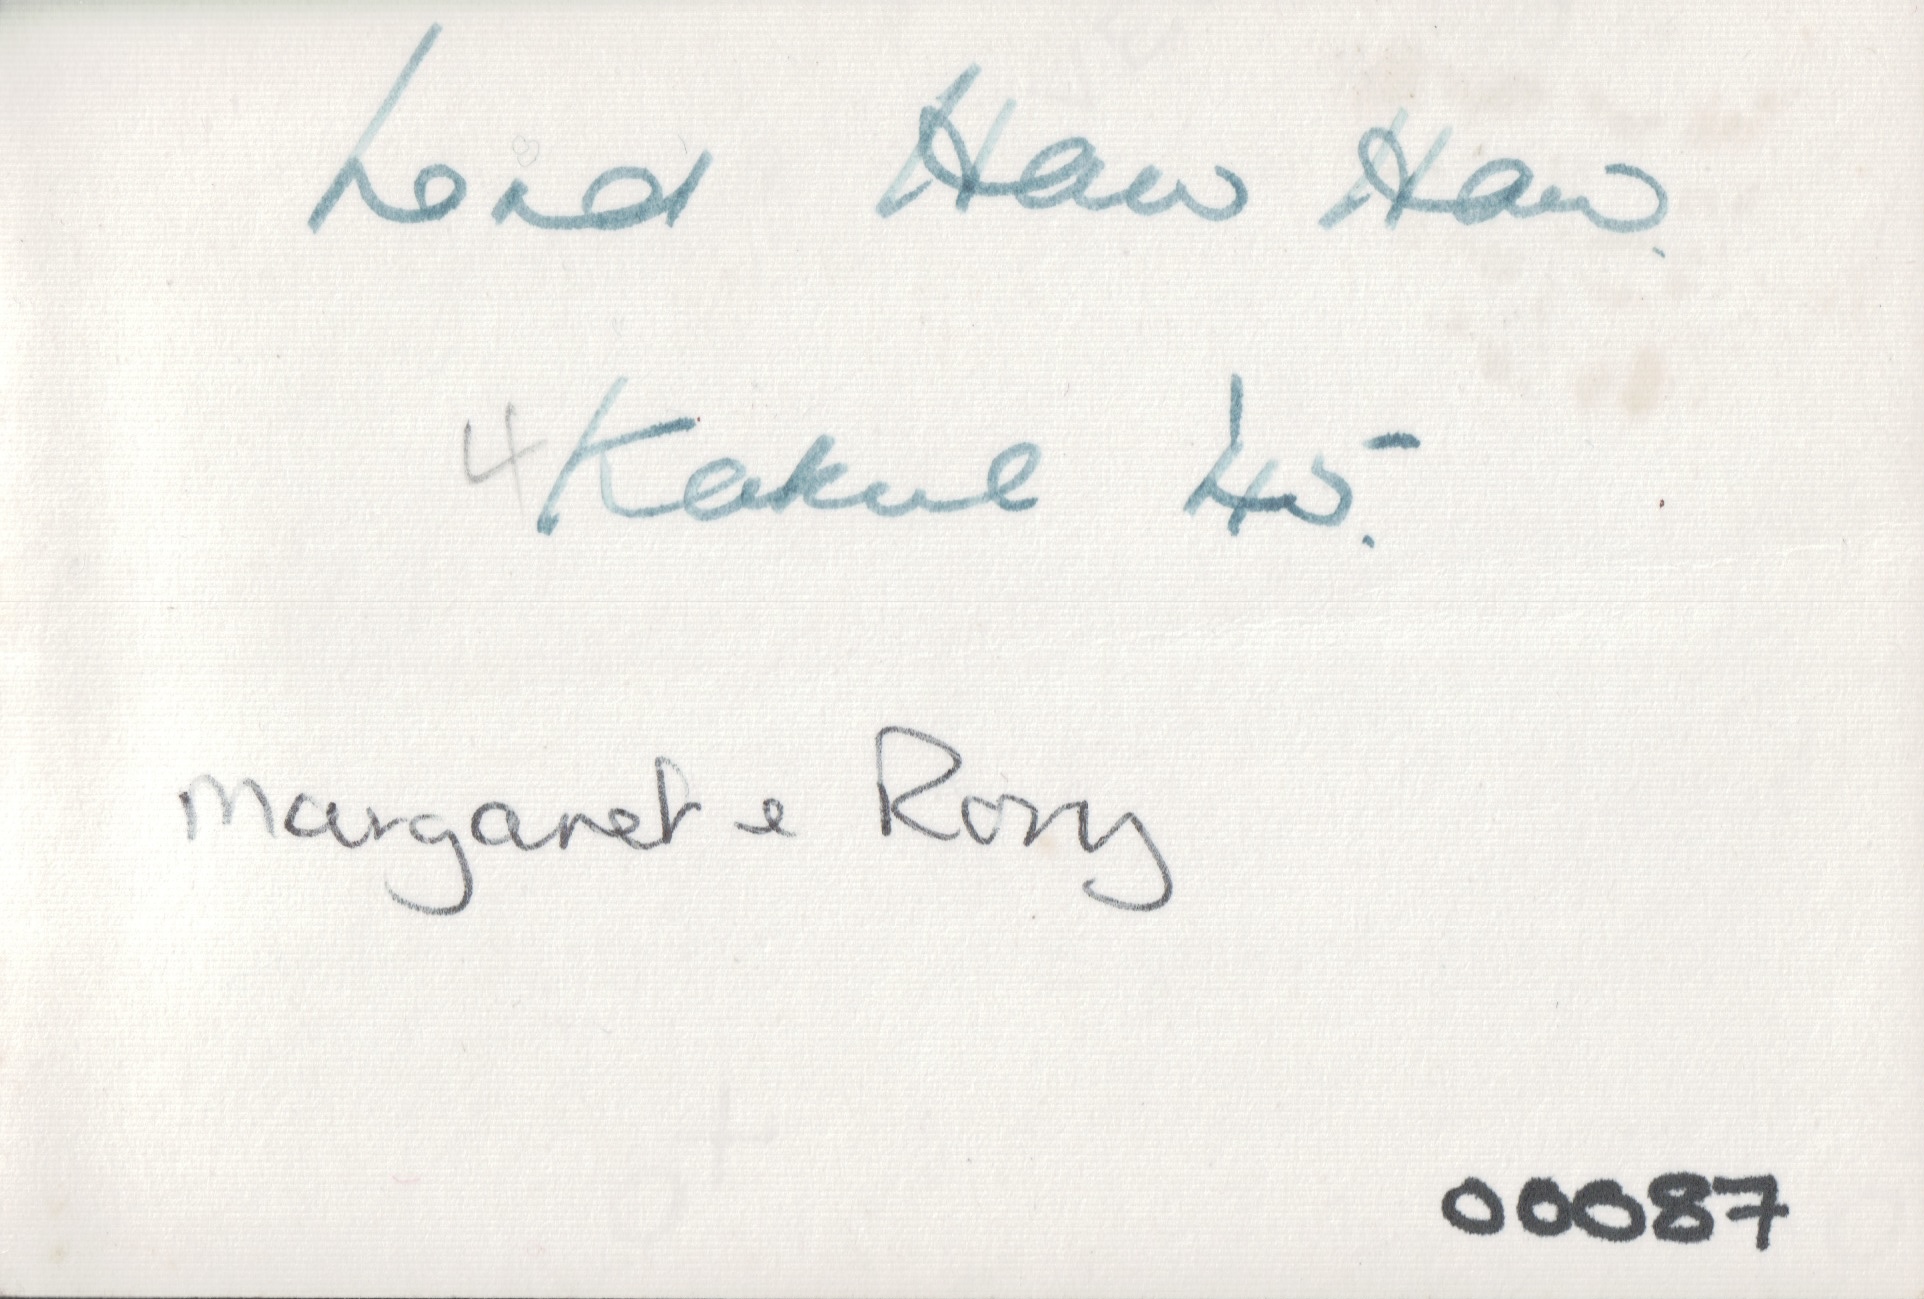 Lord Haw Haw.
4 Kakul 45.
Margaret & Rory
00087